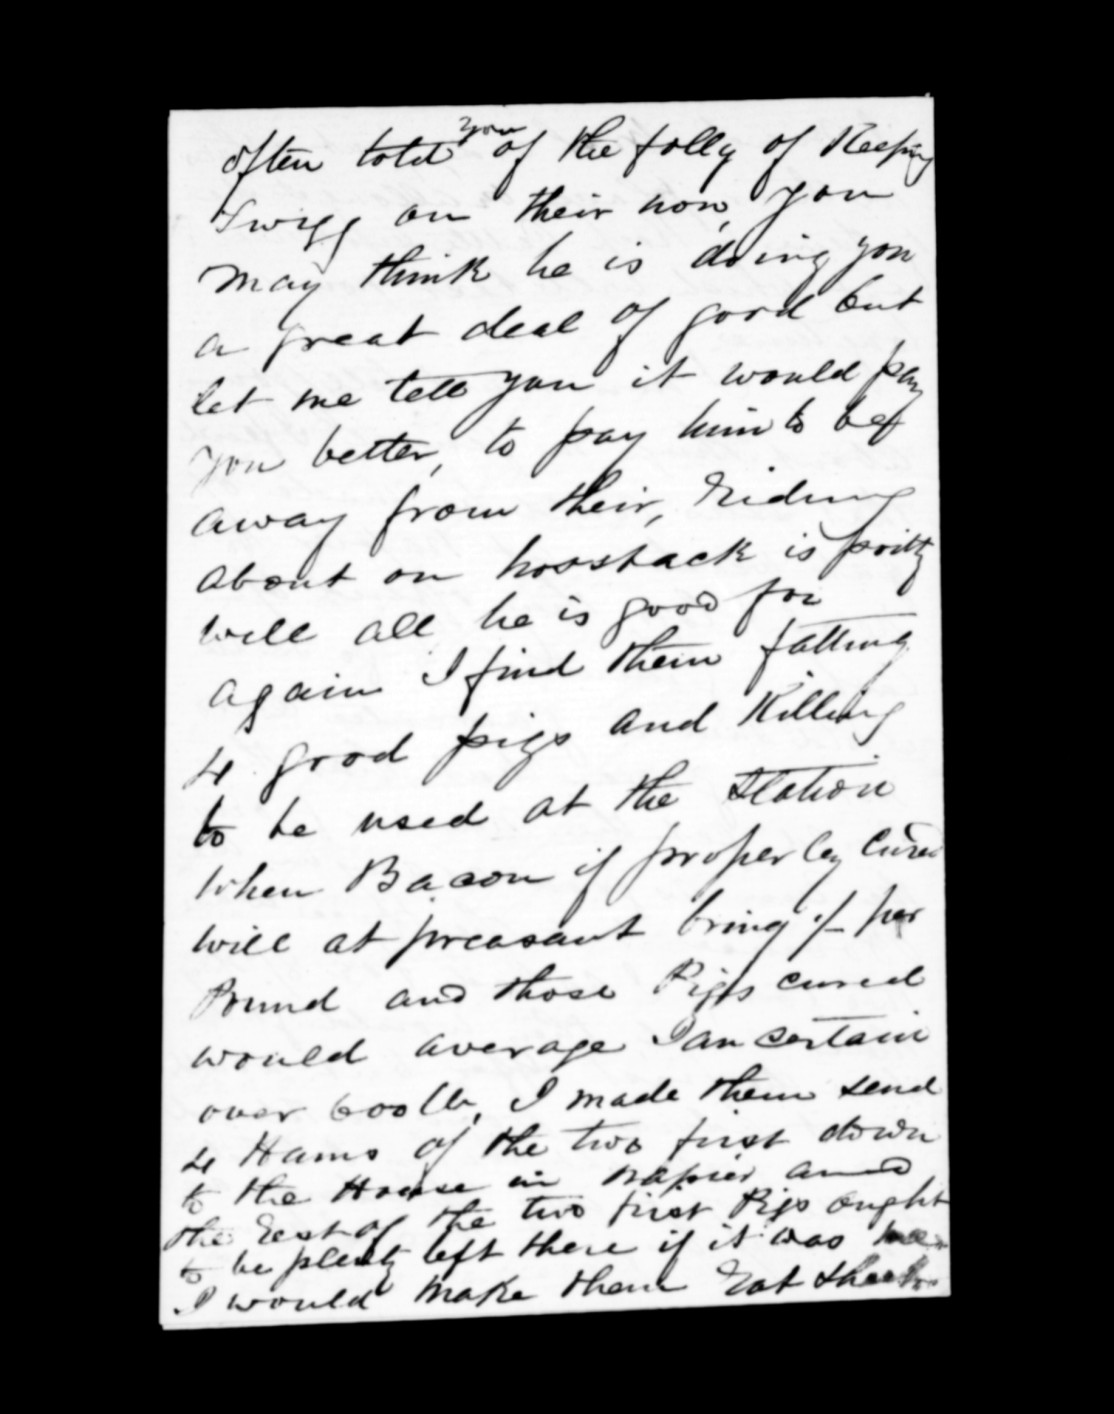 often told you of the folly of Keeping
Twigg on their now, you
may think he is doing you
a great deal of good but
let me tell you it would pay
you better, to pay him to be
away from their, Riding
about on hossback is pritty
well all he is good for
again I find them fatting
4 good pigs and Killing
to be used at the Station
when Bacon if properley Cured
will at preasant bring 1/- per
Pound and those Pigs cured
would average I am certain
over 600 lb, I made them send
4 Hams of the two first down
to the House in Napier and
the Rest of the two first Pigs ought
to be plenty left there if it was me
I would make them Eat